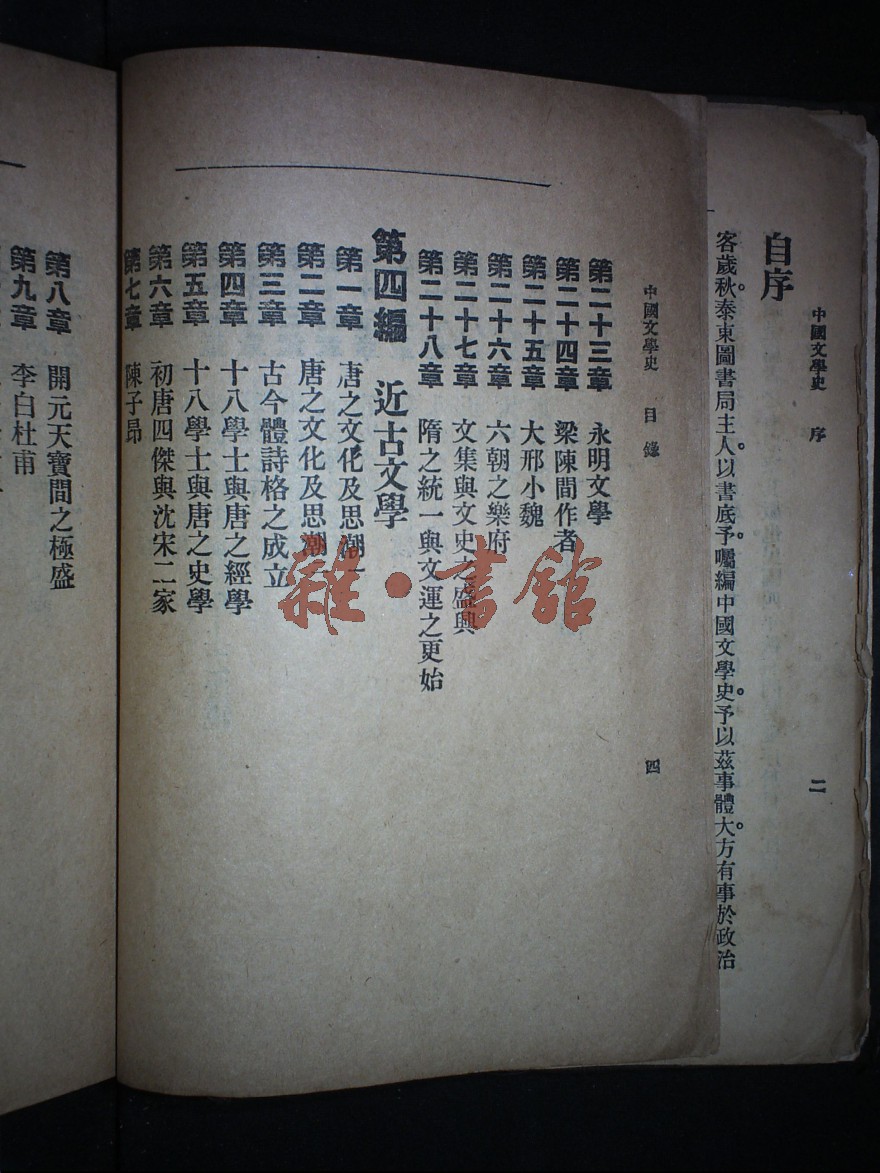 中國文學史 序 二
自序
客歲秋。泰東圖書局主人。以書底予。囑編中國文學史。予以茲事體大。方有事於政治
中國文學史 目錄 四
第二十三章 永明文學
第二十四章 梁陳間作者
第二十五章 大邢小魏
第二十六章 六朝之樂府
第二十七章 文集與文史之盛興
第二十八章 隋之統一與文運之更始
第四編 近古文學
第一章 唐之文化及思潮一
第二章 唐之文化及思潮
第三章 古今體詩格之成立
第四章 十八學士與唐之經學
第五章 十八學士與唐之史學
第六章 初唐四傑與沈宋二家
第七章 陳子昂
第八章 開元天寶間之極盛
第九章 李白杜甫
雜·書館